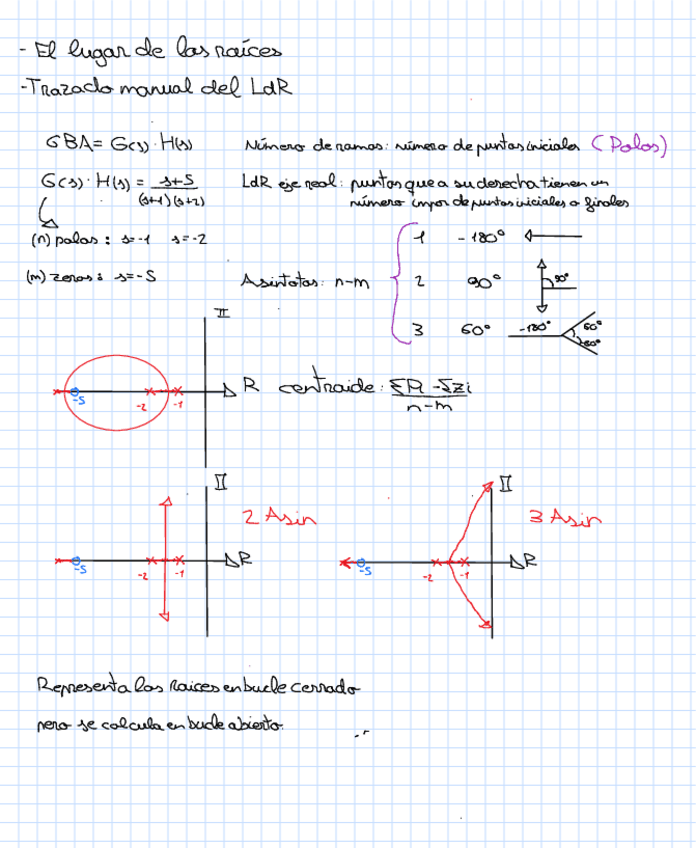 - El lugar de las raíces
- Trazado manual del LdR
GBA = G(s) · H(s) Número de ramas: número de puntos iniciales (Polos)
G(s) · H(s) = s+5 / (s+1)(s+2) LdR eje real: puntos que a su derecha tienen un
número impar de puntos iniciales o finales
(n) polos: s=-1 s=-2 1 -180°
(m) zeros: s=-5 Asintotas: n-m 2 90° 90°
3 60° -180° 60° 60°
II
R centroide: ΣPi - Σzi / n-m
-5 -2 -1
II II
2 Asin 3 Asin
R R
-5 -2 -1 -5 -2 -1
Representa las Raices en bucle cerrado
pero se calcula en bucle abierto.